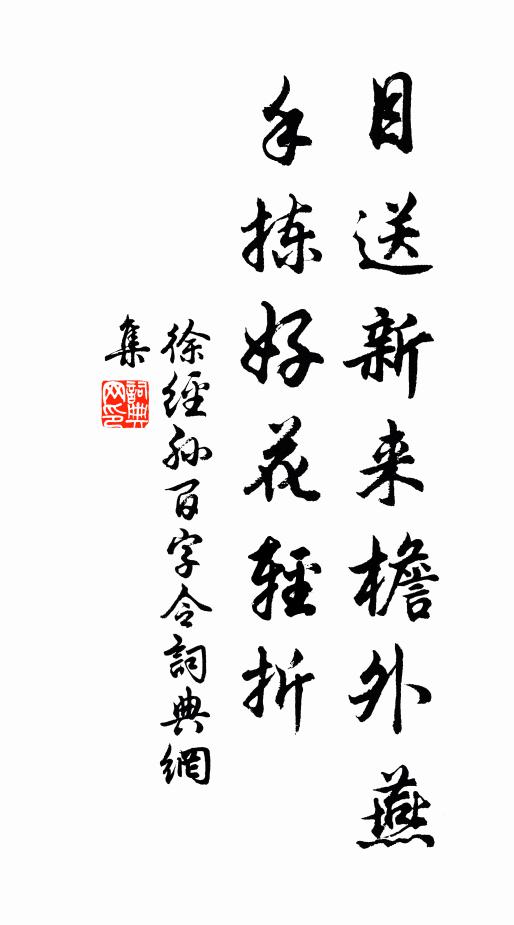 目送新来檐外燕
手拣好花轻折
徐經孙百字令詞典網
集
詞典网印